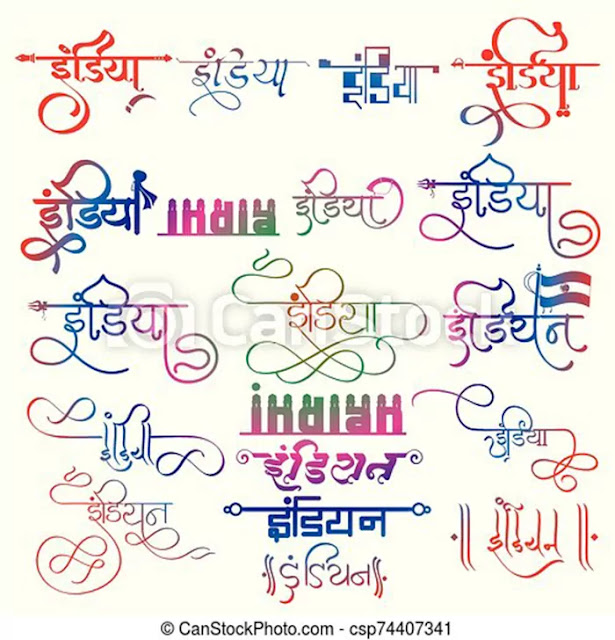 इंडिया इंडिया इंडिया इंडिया
इंडिया INDIA इंडिया इंडिया
इंडिया इंडिया इंडियन
इंडिया INDIAN इंडिया
इंडियन
इंडियन इंडियन इंडियन
इंडियन
CanStock
© CanStockPhoto.com - csp74407341